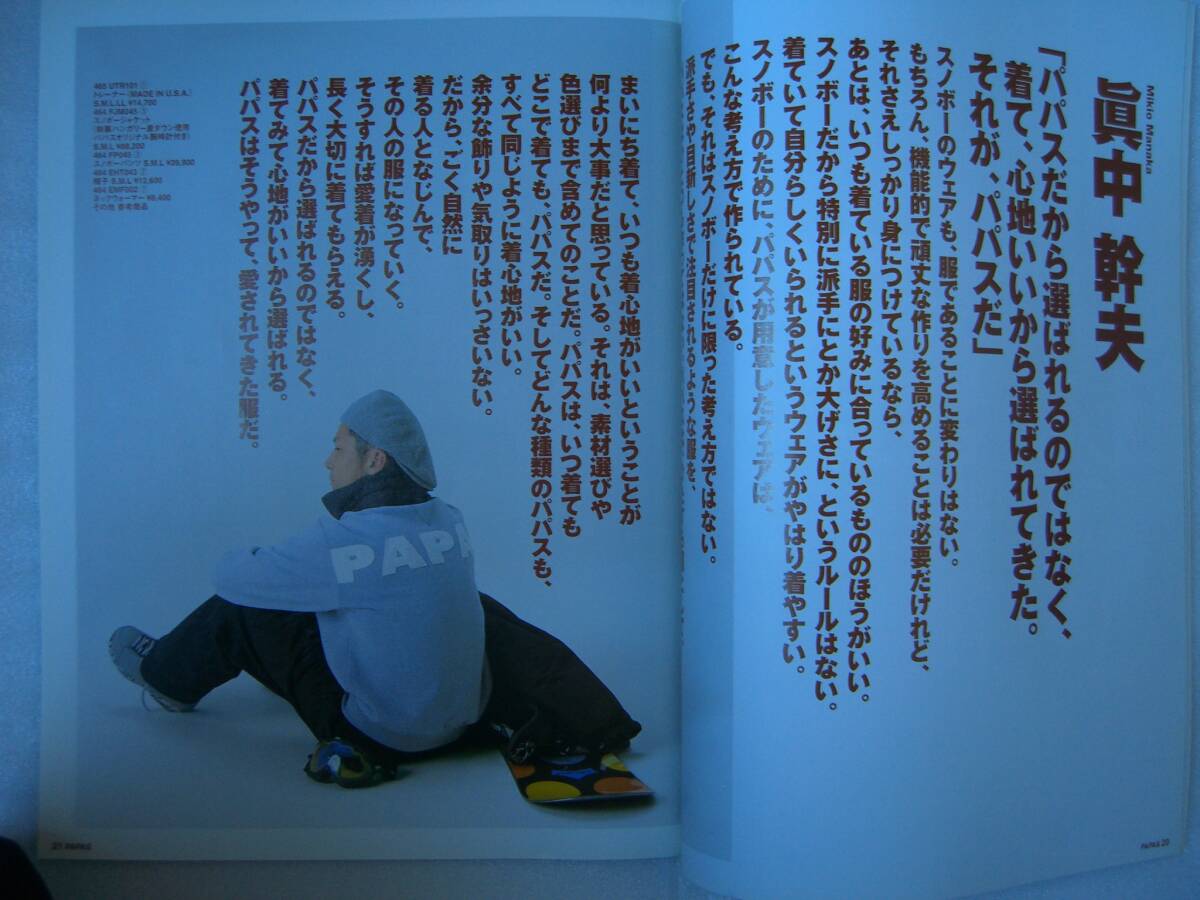 眞中 幹夫
Mikio Manaka
「パパスだから選ばれるのではなく、
着て、心地いいから選ばれてきた。
それが、パパスだ」
スノボーのウェアも、服であることに変わりはない。
もちろん、機能的で頑丈な作りを高めることは必要だけれど、
それさえしっかり身につけているなら、
あとは、いつも着ている服の好みに合っているもののほうがいい。
スノボーだから特別に派手にとか大げさに、というルールはない。
着ていて自分らしくいられるというウェアがやはり着やすい。
スノボーのために、パパスが用意したウェアは、
こんな考え方で作られている。
でも、それはスノボーだけに限った考え方ではない。
派手さや目新しさで注目されるような服を、
まいにち着て、いつも着心地がいいということが
何より大事だと思っている。それは、素材選びや
色選びまで含めてのことだ。パパスは、いつ着ても
どこで着ても、パパスだ。そしてどんな種類のパパスも、
すべて同じように着心地がいい。
余分な飾りや気取りはいっさいない。
だから、ごく自然に
着る人となじんで、
その人の服になっていく。
そうすれば愛着が湧くし、
長く大切に着てもらえる。
パパスだから選ばれるのではなく、
着てみて心地がいいから選ばれる。
パパスはそうやって、愛されてきた服だ。
465 UTR101 ①
トレーナー（MADE IN U.S.A.）
S.M.L.LL ¥14,700
464 FJM045 ③
スノボージャケット
（除幕ハンガリー産ダウン使用
パパスオリジナル腕時計付き）
S.M.L ¥68,200
464 FP045 ③
スノボーパンツ S.M.L ¥39,900
464 EHT043 ②
帽子 S.M.L ¥12,600
464 EMF002 ⑦
ネックウォーマー ¥8,400
その他 参考商品
PAPA
21 PAPAS
PAPAS 20